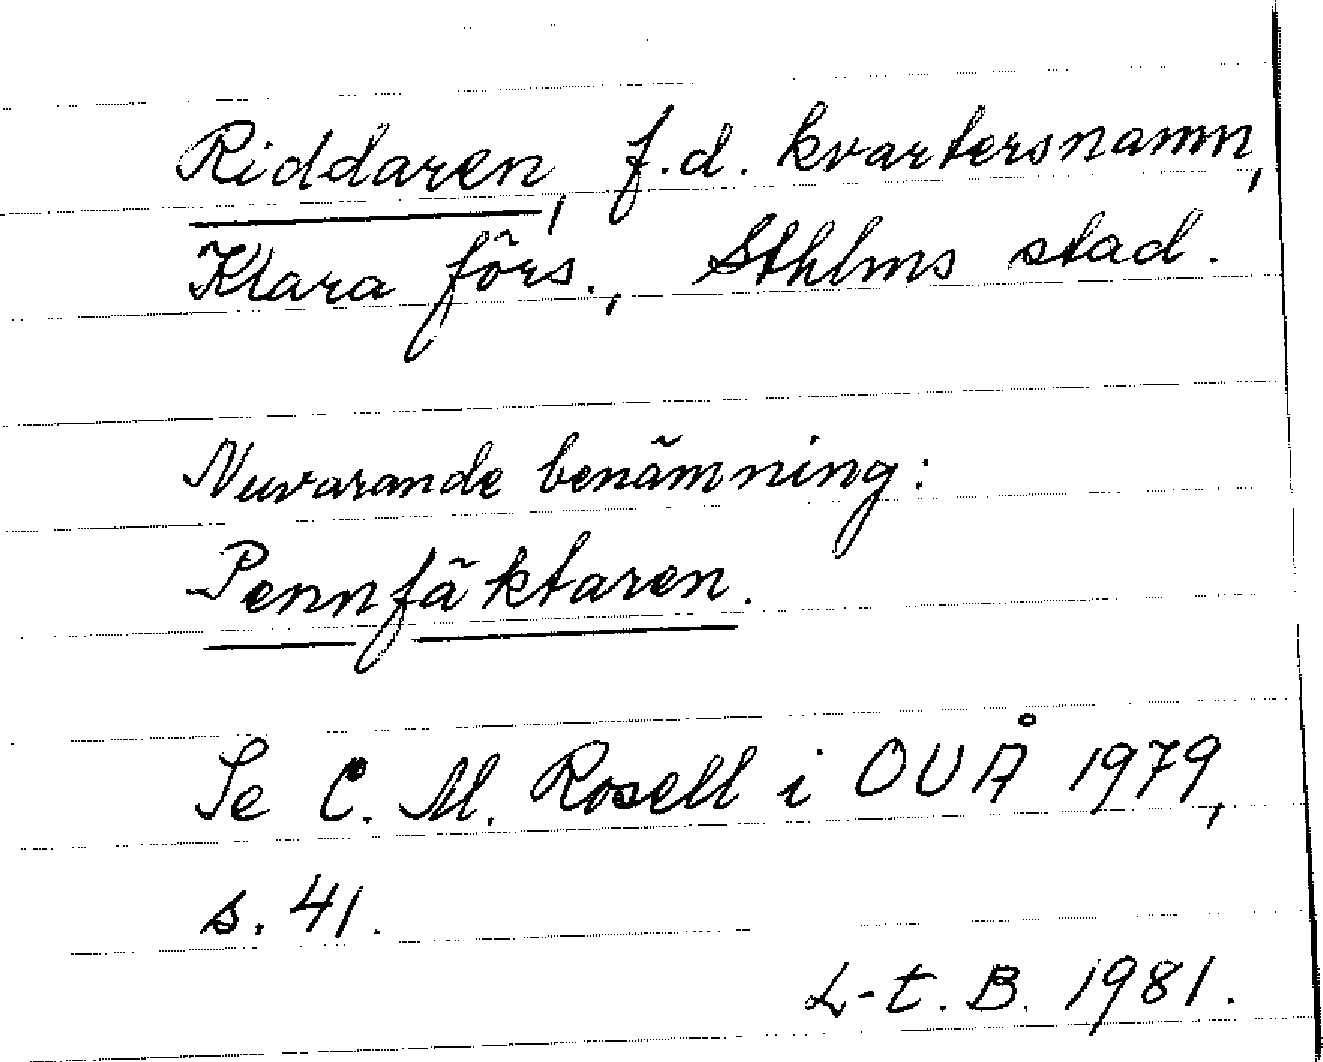 Riddaren, f.d. kvartersnamn,
Klara förs., Sthlms stad.
Nuvarande benämning:
Pennfäktaren.
Se C. M. Rosell i OUÅ 1979,
s. 41.
L-t. B. 1981.